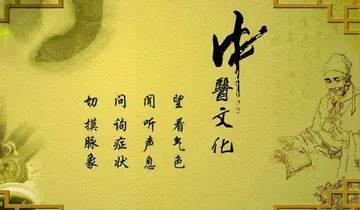 中醫文化
望 看气色
闻 听声息
问 询症状
切 摸脉象